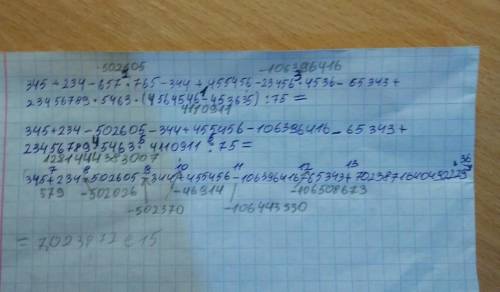 502605 -106396416
345 + 234 - 657 · 765 - 344 + 455456 - 23456 · 4536 - 65343 +
23456789 · 5463 · (4564546 - 453635) : 75 =
4110911
345 + 234 - 502605 - 344 + 455456 - 106396416 - 65343 +
23456789 · 5463 · 4110911 : 75 =
1281444383007
7 8 9 10 11 12 13
345 + 234 - 502605 - 344 + 455456 - 106396416 - 65343 + 7023871640430229,36
579 -502026 -46914 -106508673
-502370 -106443330
= 7,023872 e 15